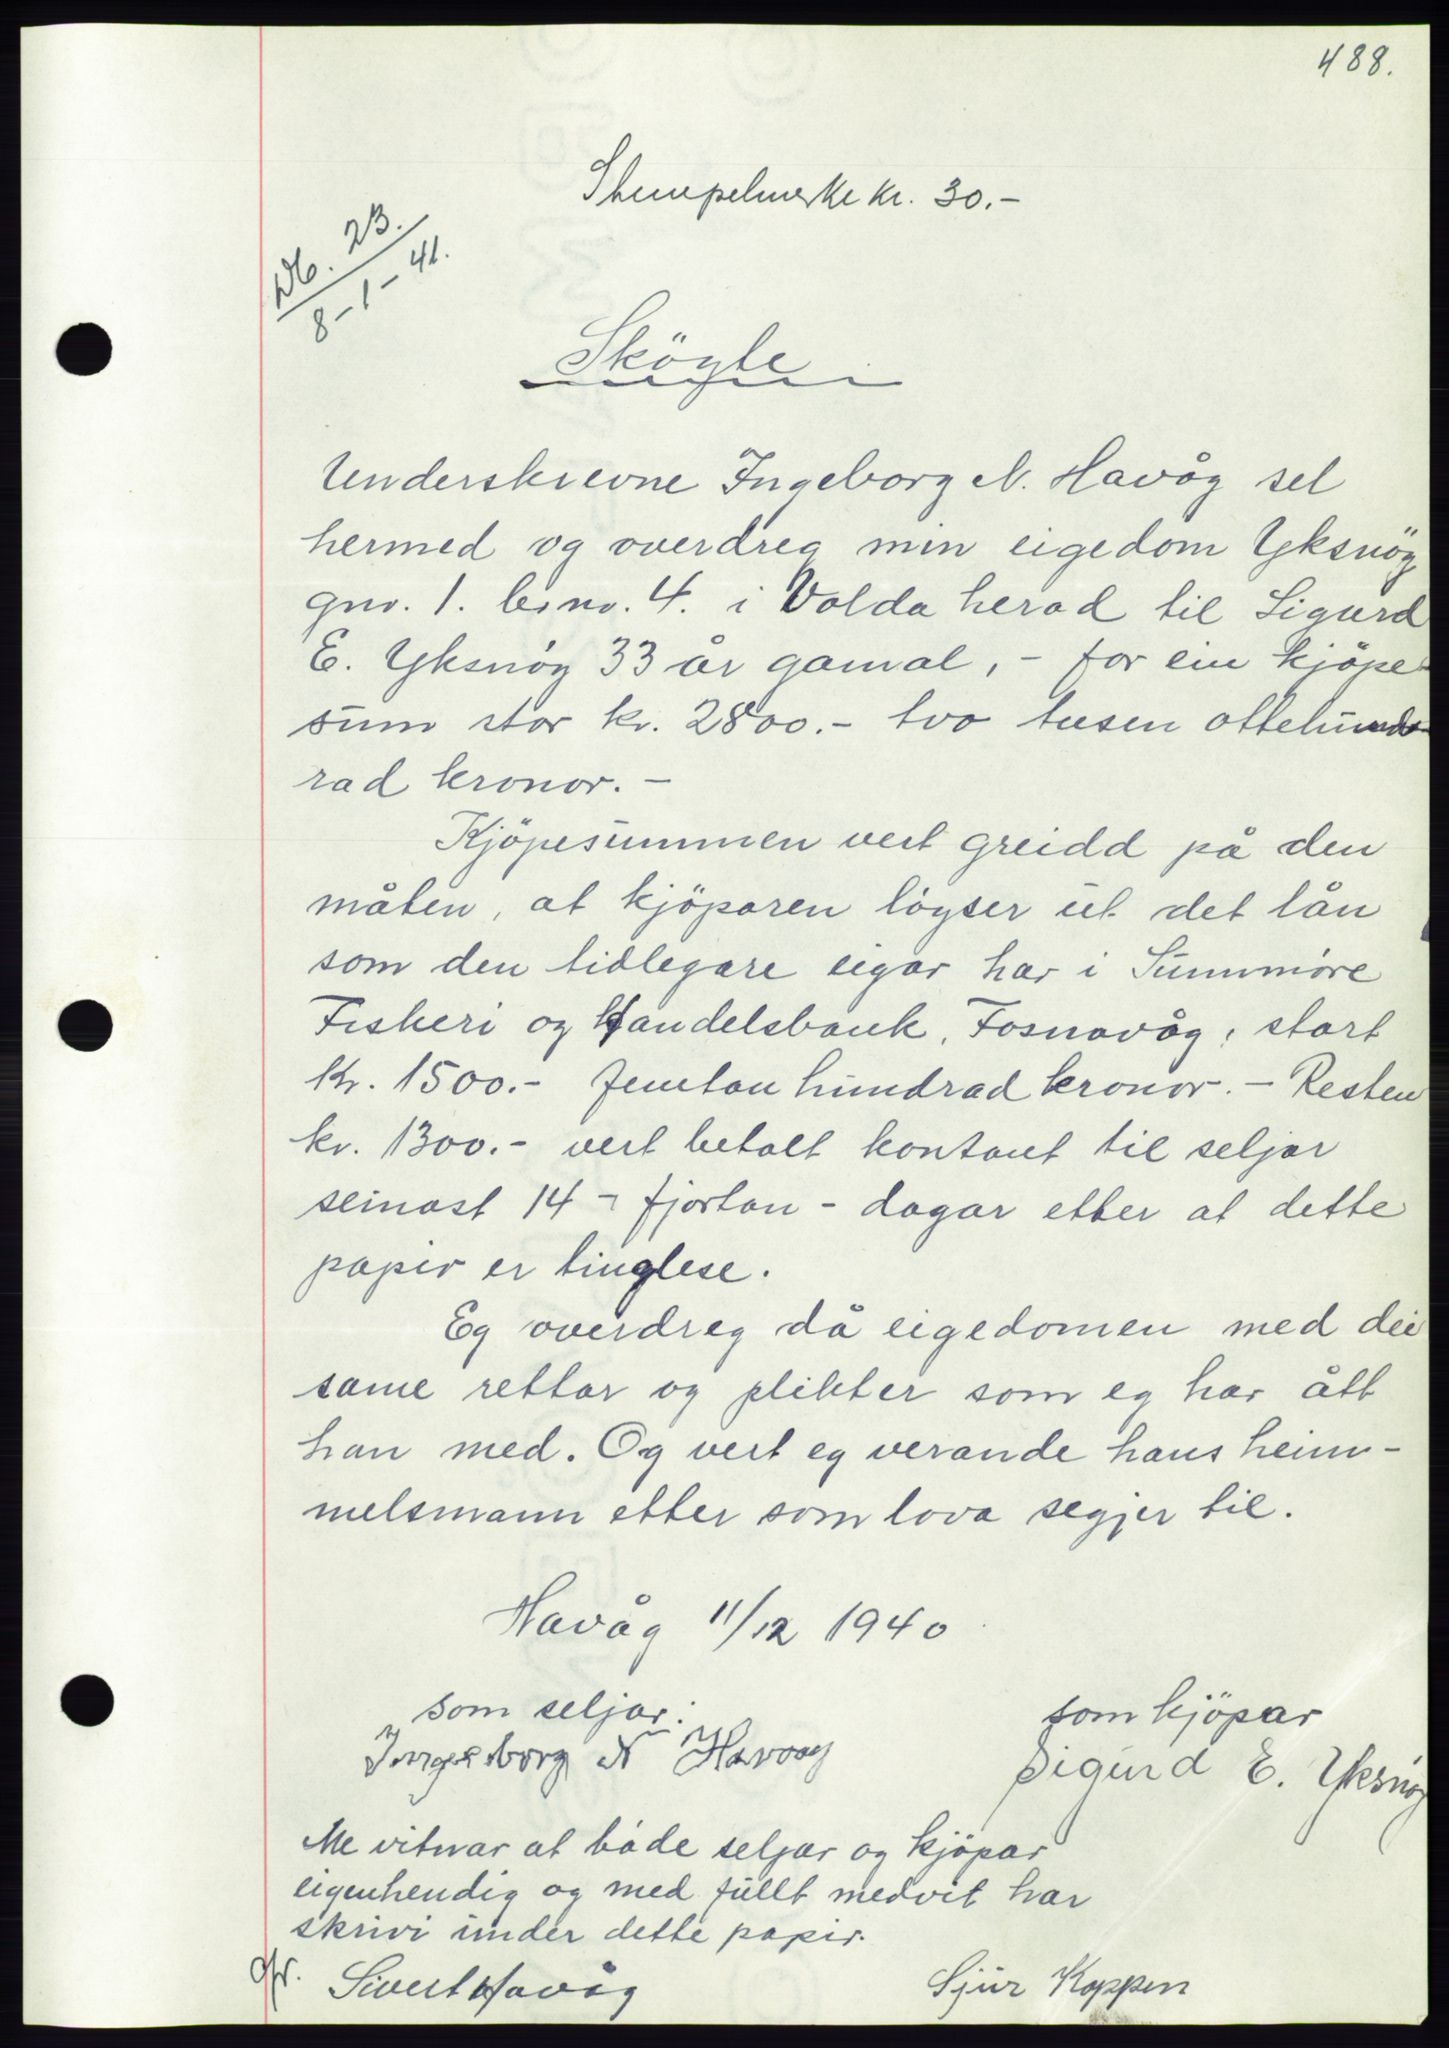 488.
Stempelmerke kr. 30.-
Nr. 23.
8-1-41.
Sköyte
Underskrevne Ingeborg N. Havåg sel
hermed og overdreg min eigedom Yksnöy
gnr. 1. brnr. 4. i Volda herad til Sigurd
E. Yksnöy 33 år gamal, - for ein kjöpe
sum stor kr. 2800.- tvo tusen ottehund
rad kronor. -
Kjöpesummen vert greidd på den
måten, at kjöparen löyser ut det lån
som den tidlegare eigar har i Sunnmöre
Fiskeri og Handelsbank, Fosnavåg, stort
kr. 1500.- femtan hundrad kronor. - Resten
kr. 1300.- vert betalt kontant til seljar
seinast 14 - fjortan - dagar etter at dette
papir er tinglese.
Eg overdreg då eigedomen med dei
same rettar og plikter som eg har ått
han med. Og vert eg verande hans heim-
melsmann etter som lova segjer til.
Havåg 11/12 1940
som seljar: som kjöpar
Ingeborg N Havaag Sigurd E. Yksnöy
Me vitnar at både seljar og kjöpar
eigenhendig og med fullt medvit har
skrivi under dette papir.
Sivert Havåg Sjur Koppen